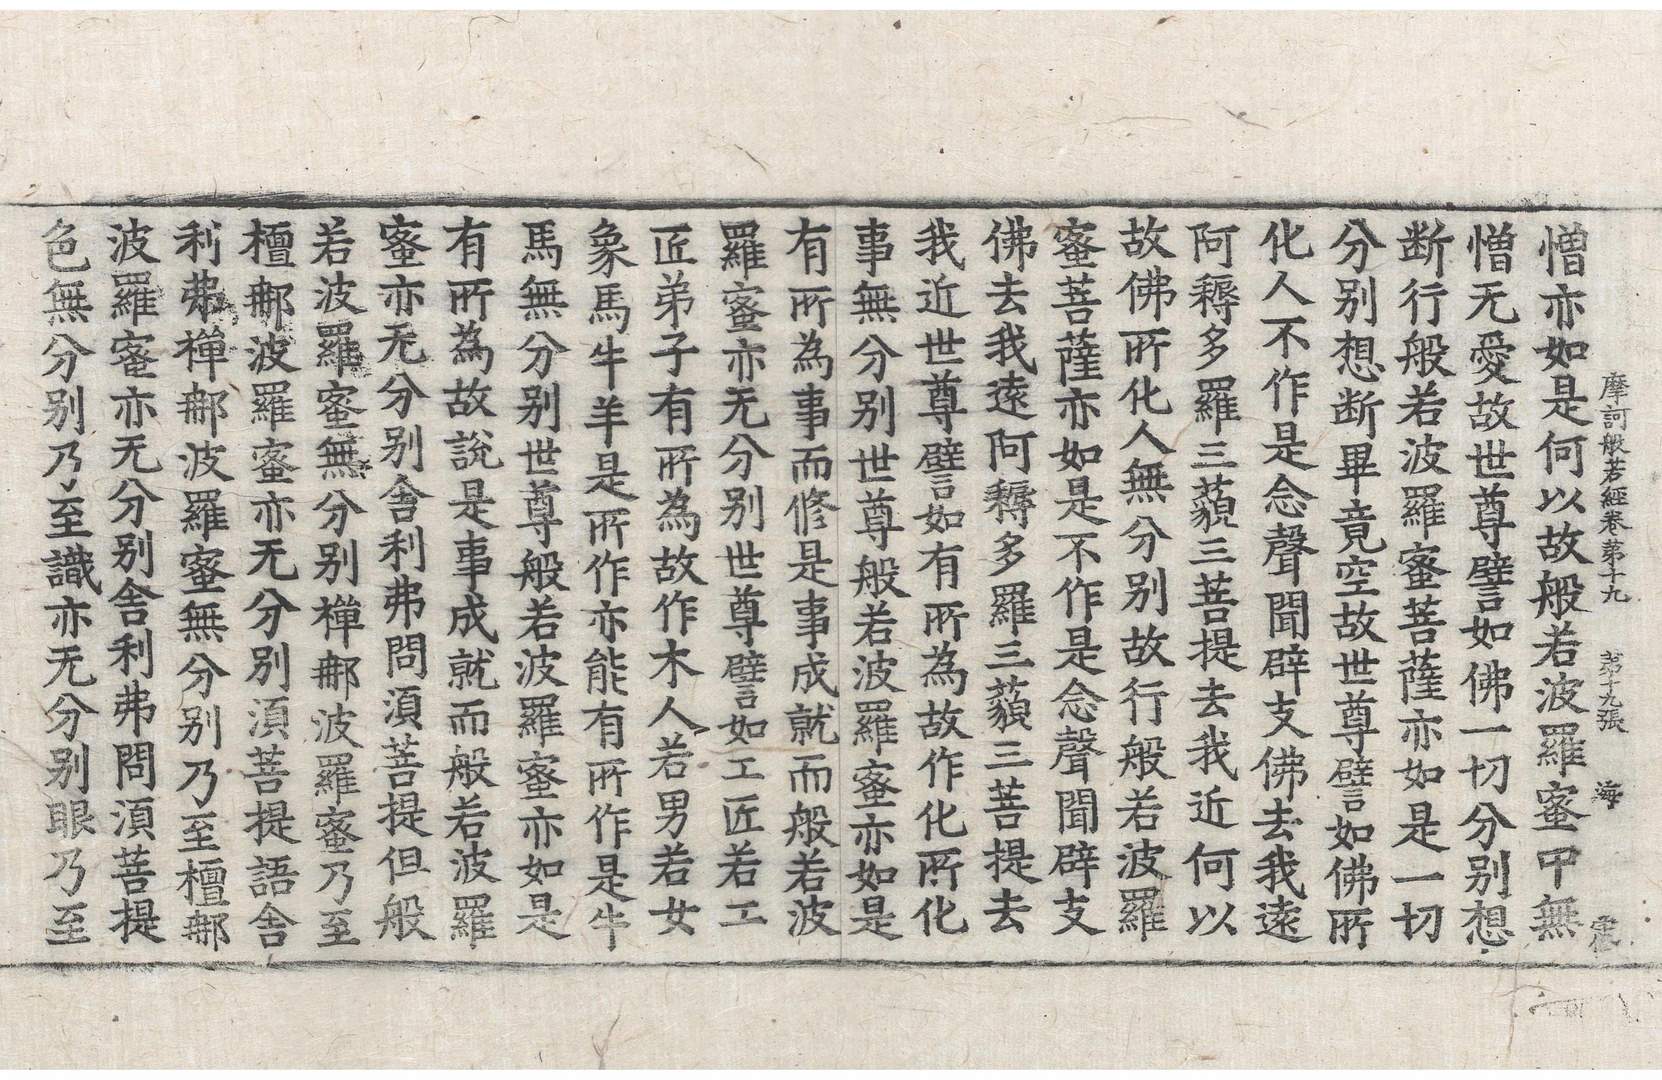 摩訶般若經卷第十九　第十九張　海
憎亦如是何以故般若波羅蜜中無
憎无愛故世尊譬如佛一切分別想
断行般若波羅蜜菩薩亦如是一切
分別想断畢竟空故世尊譬如佛所
化人不作是念聲聞辟支佛去我遠
阿耨多羅三藐三菩提去我近何以
故佛所化人無分別故行般若波羅
蜜菩薩亦如是不作是念聲聞辟支
佛去我遠阿耨多羅三藐三菩提去
我近世尊譬如有所為故作化所化
事無分別世尊般若波羅蜜亦如是
有所為事而修是事成就而般若波
羅蜜亦无分別世尊譬如工匠若工
匠弟子有所為故作木人若男若女
象馬牛羊是所作亦能有所作是牛
馬無分別世尊般若波羅蜜亦如是
有所為故說是事成就而般若波羅
蜜亦无分別舍利弗問湏菩提但般
若波羅蜜無分別禪那波羅蜜乃至
檀那波羅蜜亦无分別湏菩提語舍
利弗禪那波羅蜜無分別乃至檀那
波羅蜜亦无分別舍利弗問湏菩提
色無分別乃至識亦无分別眼乃至